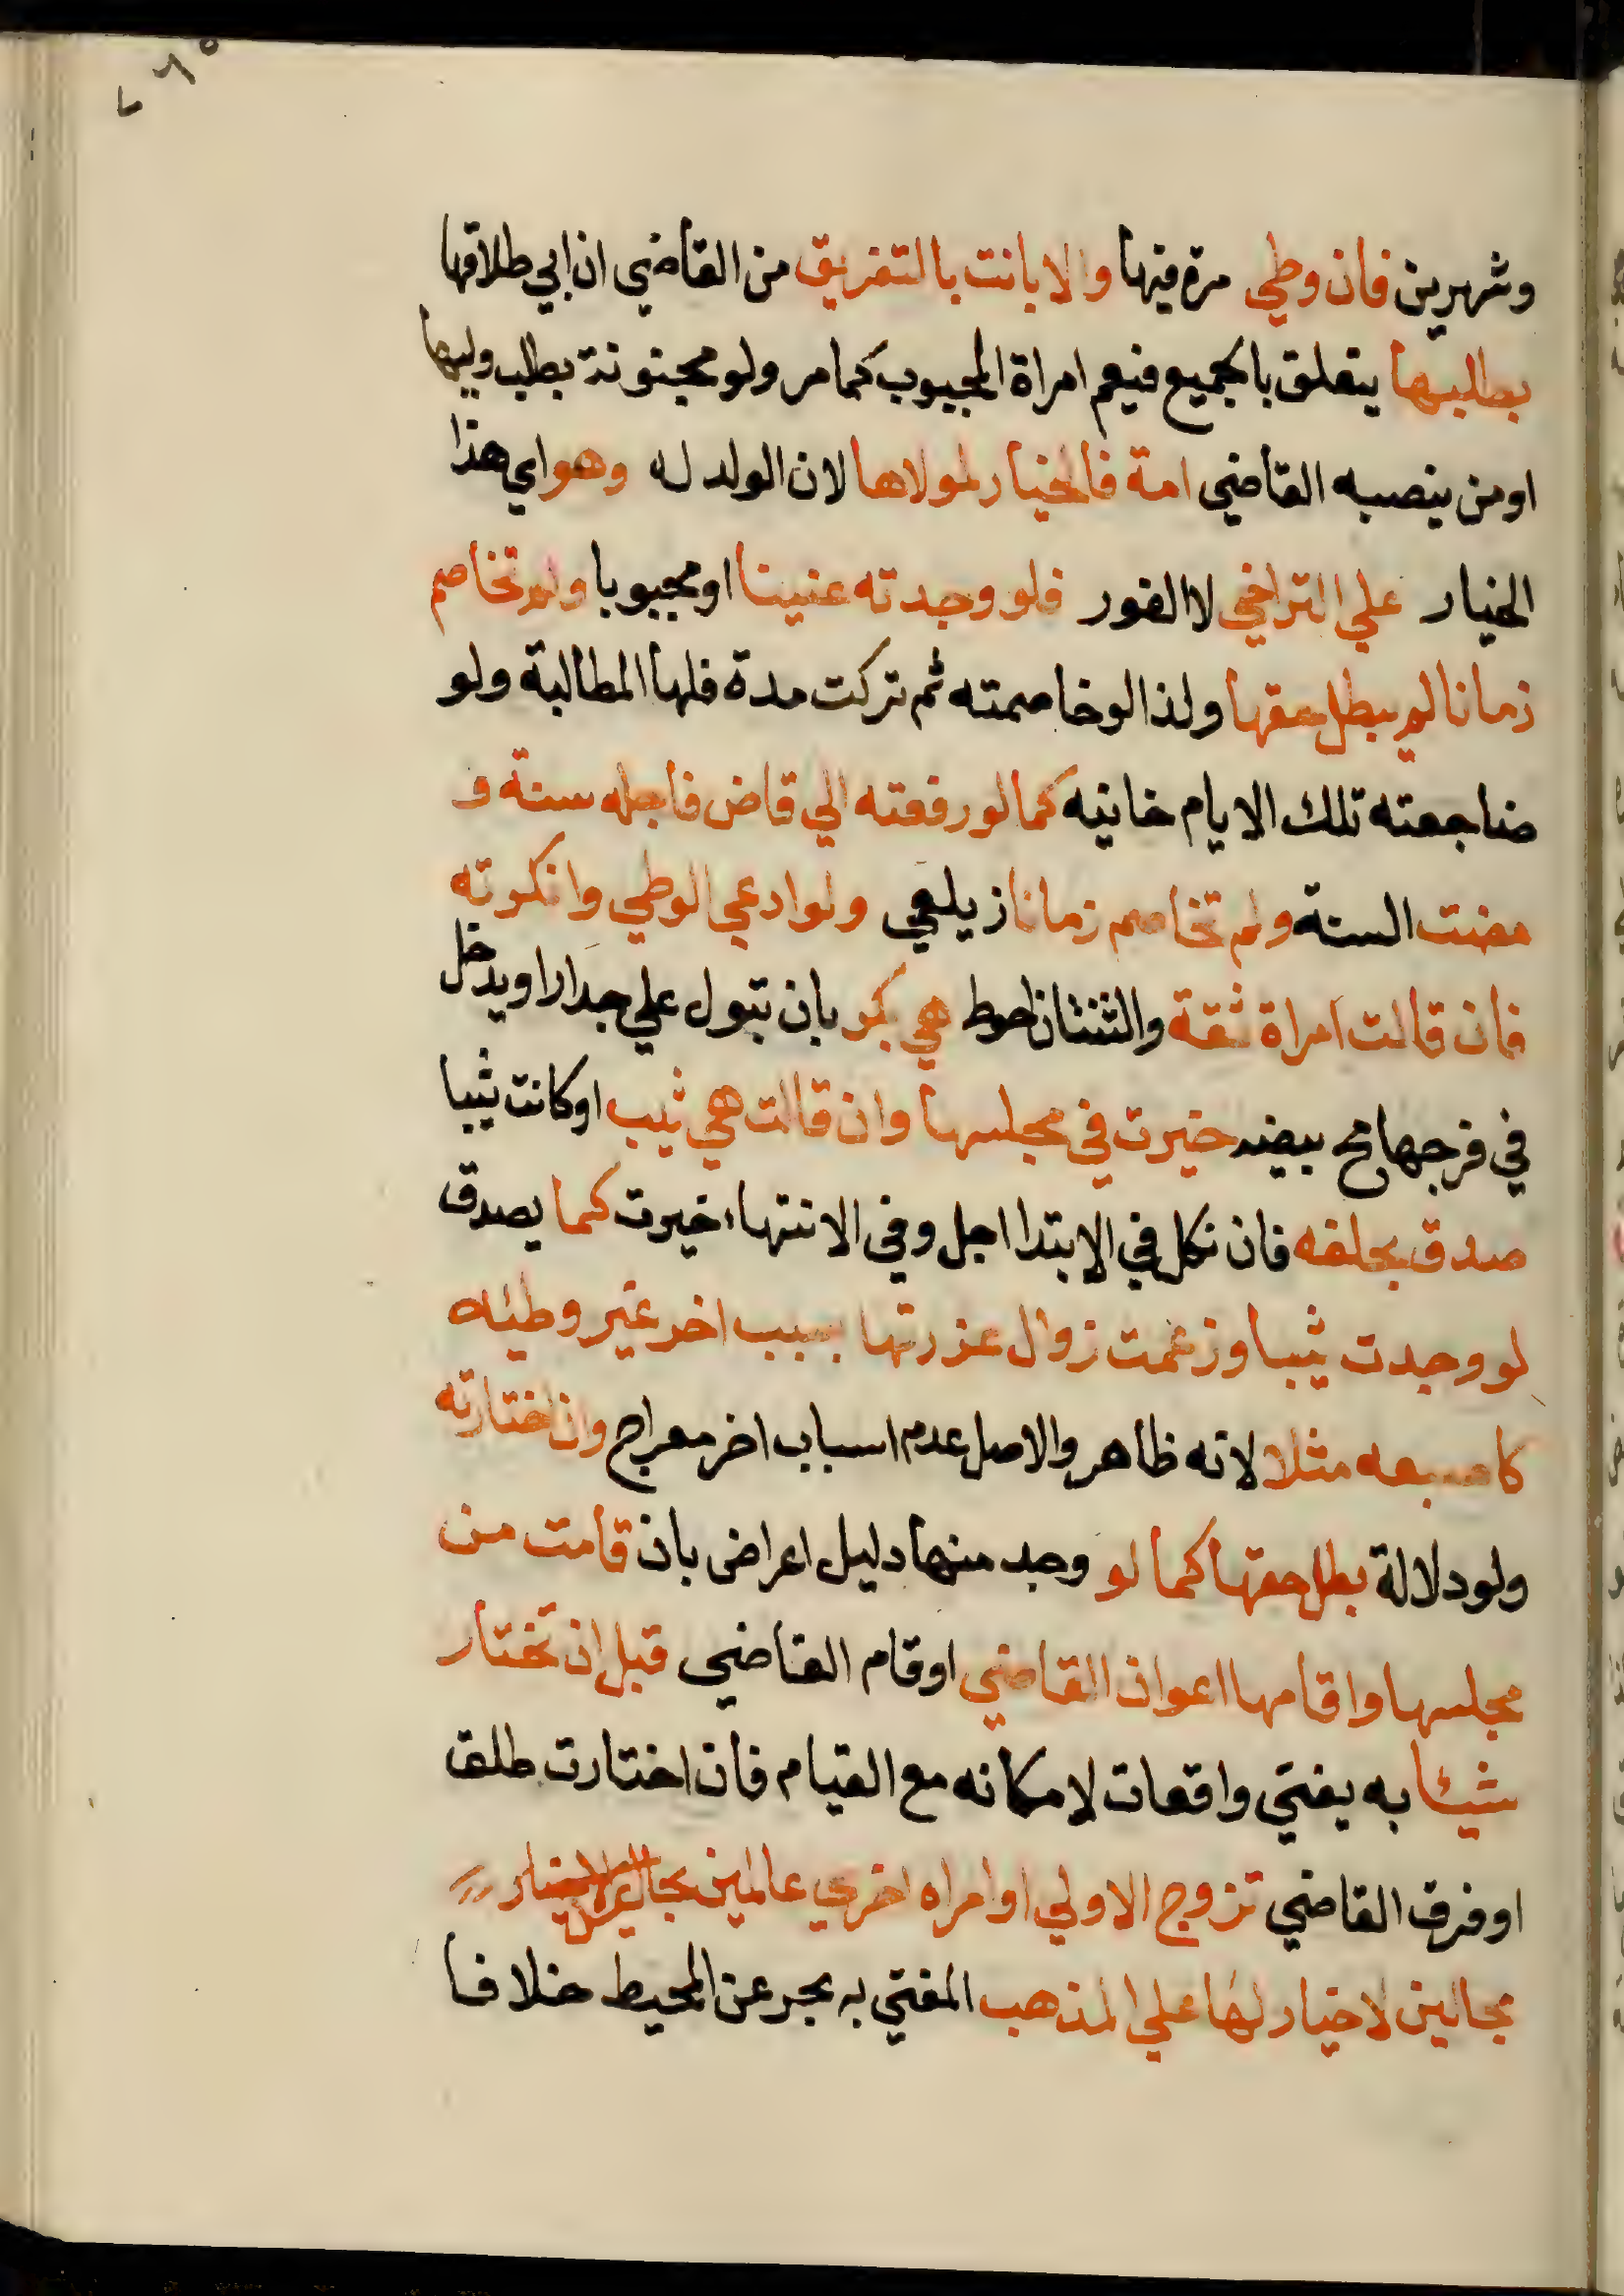 ٢٦٥
وشهرين فان وطي مرة فيها والا بانت بالتفريق من القاضي ان ابي طلاقها
بطلبها يتعلق بالجميع فيعم امراة المجبوب كما مر ولو مجنونة بطلب وليها
او من ينصبه القاضي امة فالخيار لمولاها لان الولد له وهو اي هذا
الخيار علي التراخي لا الفور فلو وجدته عنينا او مجبوبا ولم تخاصم
زمانا لم يبطل حقها ولذا لو خاصمته ثم تركت مدة فلها المطالبة ولو
ضاجعته تلك الايام خانيه كما لو رفعته الي قاض فاجله سنة و
مضت السنة ولم تخاصم زمانا زيلعي ولو ادعي الوطي وانكرته
فان قالت امراة ثقة والثنتان احوط هي بكر بان تبول علي جدار او يدخل
في فرجها مح بيضه خيرت في مجلسها وان قالت هي ثيب او كانت ثيبا
صدق بحلفه فان نكل في الابتدا اجل وفي الانتهاء خيرت كما يصدق
لو وجدت ثيبا وزعمت زوال عذرتها بسبب اخر غير وطئه
كاصبعه مثلا لانه ظاهر والاصل عدم اسباب اخر معراج وان اختارته
ولو دلالة بطل حقها كما لو وجد منها دليل اعراض بان قامت من
مجلسها او اقامها اعوان القاضي او قام القاضي قبل ان تختار
شيئا به يفتي واقعات لامكانه مع القيام فان اختارت طلق
او فرق القاضي تزوج الاولي او امراه اخري عالمين بحاله لا خيار
مجالين لا خيار لها علي المذهب المفتي به بحر عن المحيط خلافا